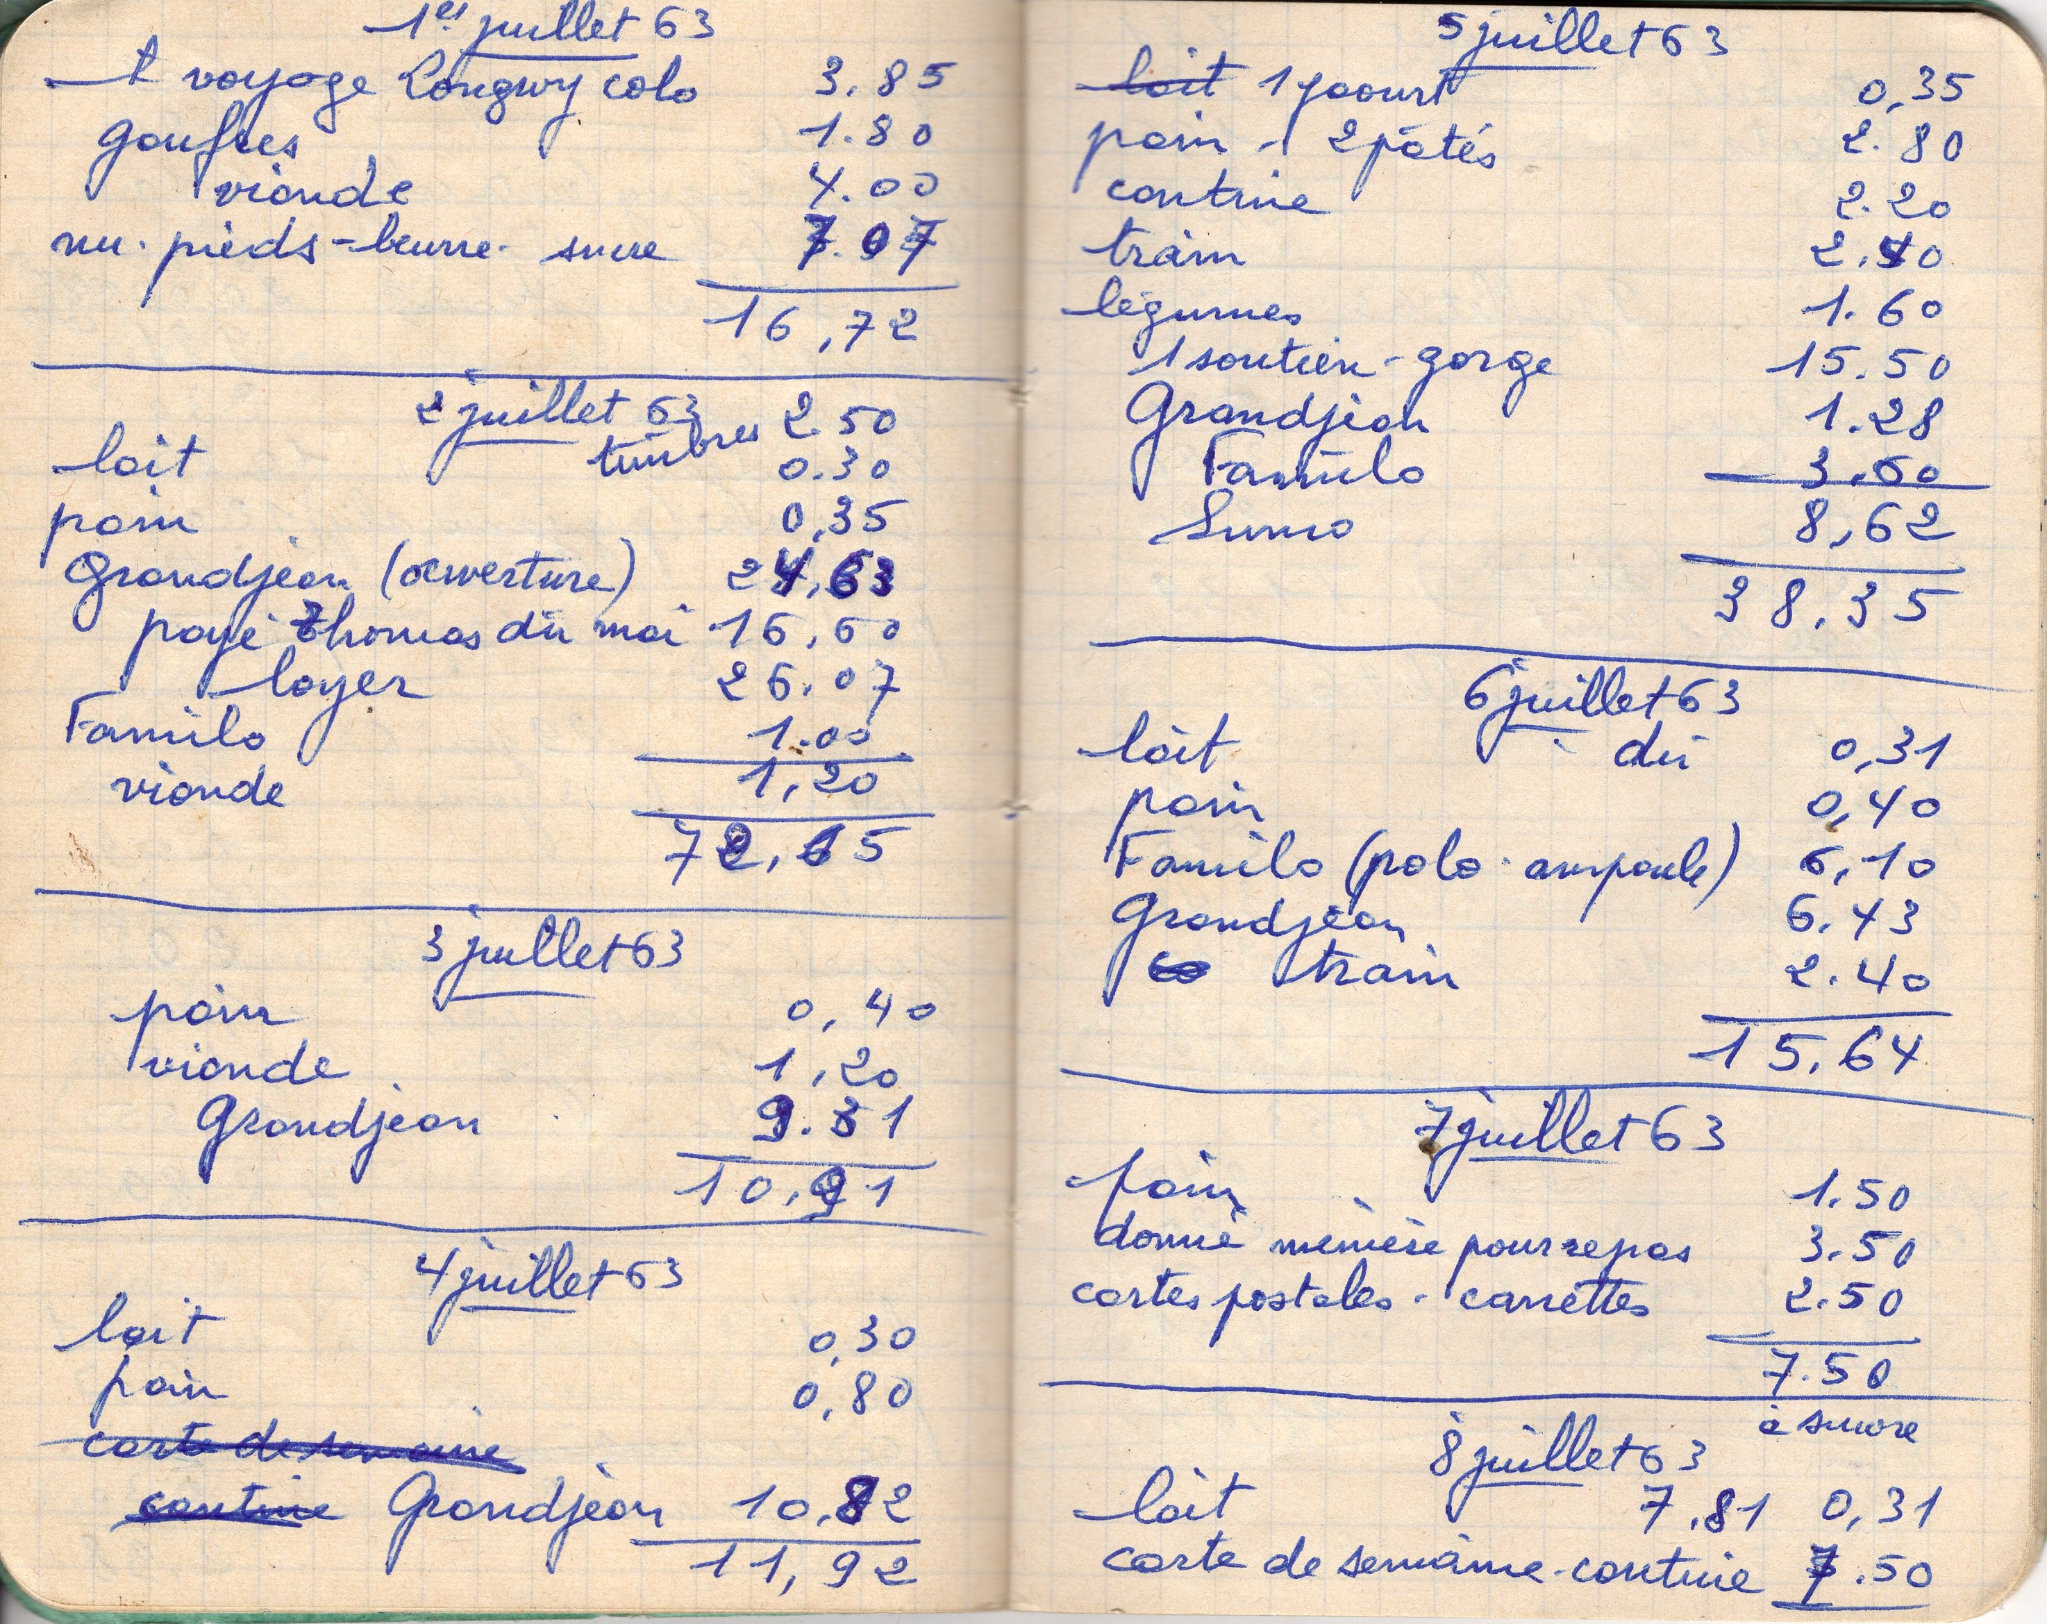 1er juillet 63
1 voyage Longwy colo 3.85
gaufres 1.80
viande 4.00
nu-pieds - beurre - sucre 7.07
16,72
2 juillet 63
timbres 2.50
lait 0.30
pain 0,35
Grandjean (ouverture) 24,63
payé Thomas du mai 16,60
loyer 26.07
Familo 1.00
viande 1,20
72,65
3 juillet 63
pain 0,40
viande 1,20
Grandjean 9.31
10,91
4 juillet 63
lait 0,30
pain 0,80
carte de semaine
cantine Grandjean 10,82
11,92
5 juillet 63
lait 1 yaourt 0,35
pain - 2 pâtés 2.80
cantine 2.20
train 2.40
légumes 1.60
1 soutien-gorge 15.50
Grandjean 1.28
Familo 3.60
Suma 8,62
38,35
6 juillet 63
lait dû 0,31
pain 0,40
Familo (polo - ampoule) 6,10
Grandjean 6.43
train 2.40
15,64
7 juillet 63
pain 1.50
donné mémère pour repas 3.50
cartes postales - carrettes 2.50
7.50
8 juillet 63
lait 7,81 0,31
carte de semaine - cantine 7.50